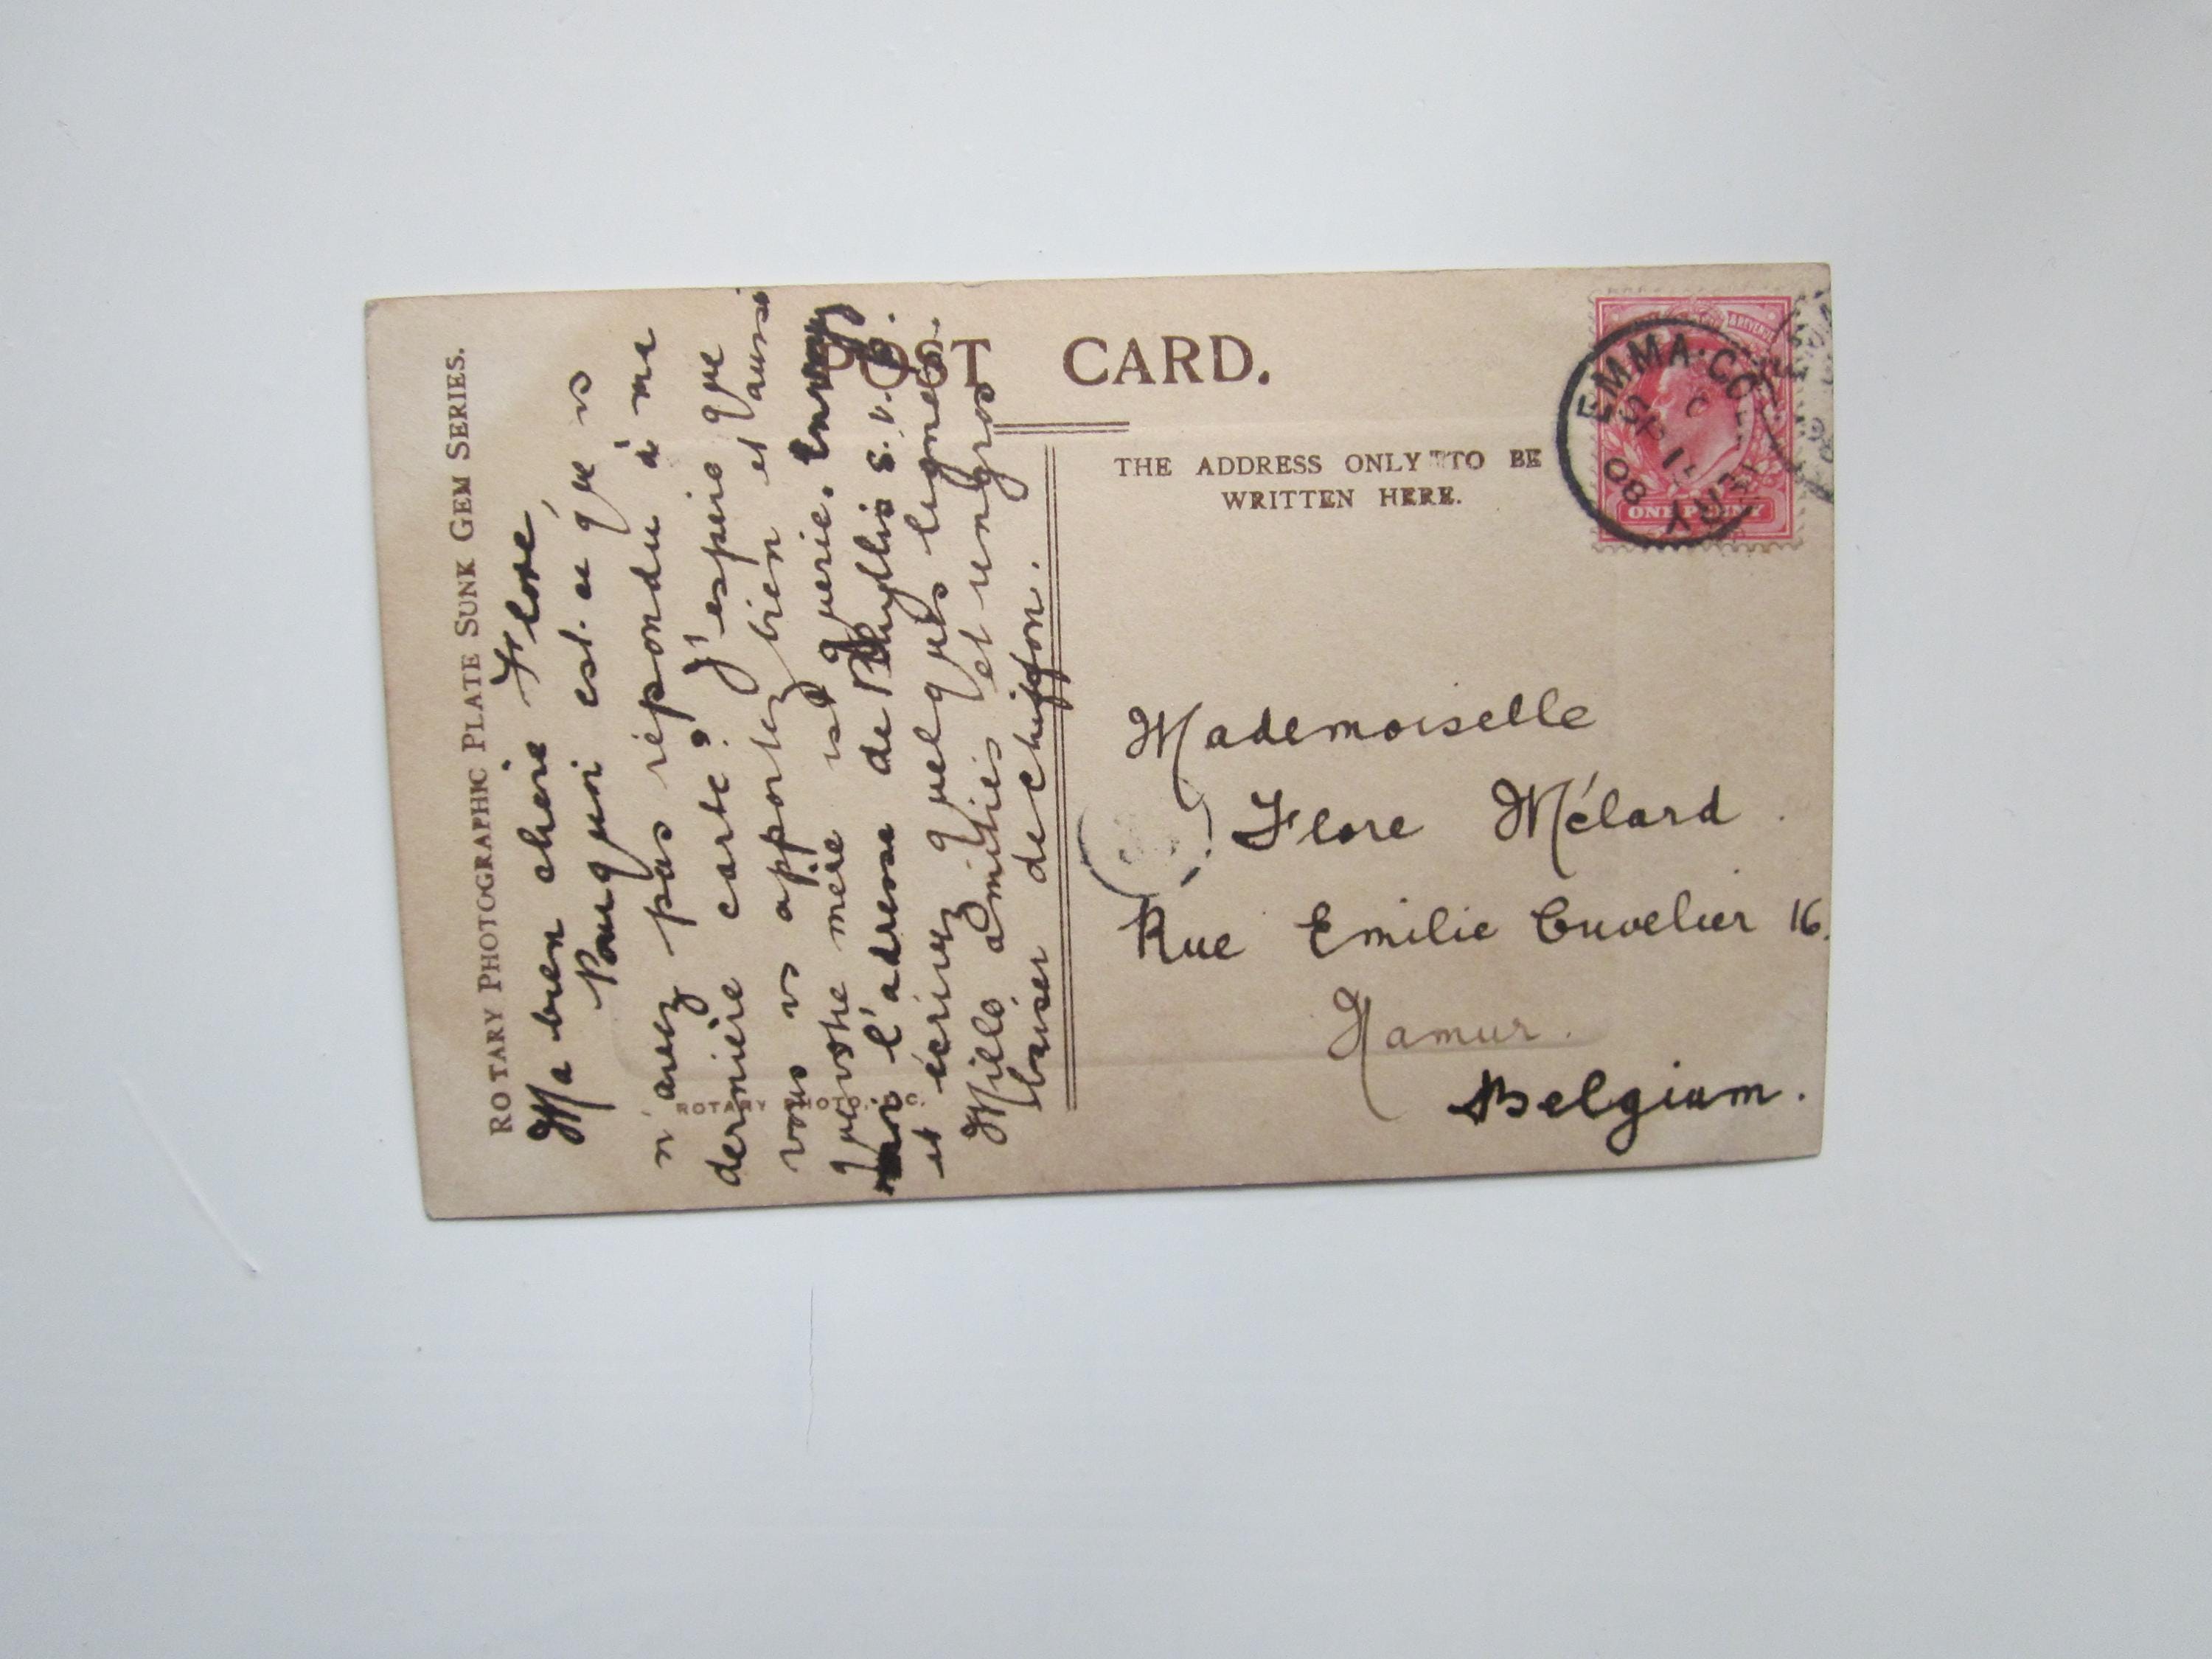 ROTARY PHOTOGRAPHIC PLATE SUNK GEM SERIES.
Ma bien chère Flore,
Pourquoi est-ce que vs
n'avez pas répondu à ma
dernière carte? J'espère que
vous vs apportez bien et aussi
que votre mère est guérie. Envoy
l'adresse de Phyllis s.v.p.
et écrivez quelques lignes.
Mille amitiés et un gros
baiser de chiffon.
ROTARY PHOTO. E.C.
POST CARD.
THE ADDRESS ONLY TO BE
WRITTEN HERE.
EMMA·CO
SP 11
08
ONE PENNY
Mademoiselle
Flore Mélard
Rue Emilie Cuvelier 16.
Namur.
Belgium.